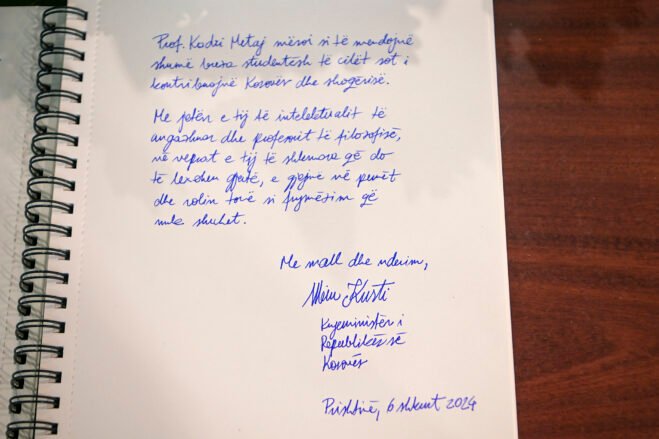 Prof. Kadri Metaj mësoi si të mendojnë
shumë breza studentësh të cilët sot i
kontribuojnë Kosovës dhe shoqërisë.
Me jetën e tij të intelektualit të
angazhuar dhe profesorit të filozofisë,
në veprat e tij të shkruara që do
të lexohen gjatë, e gjejmë në penët
dhe rolin tonë si frymëzim që
nuk shuhet.
Me mall dhe nderim,
Albin Kurti
Kryeministër i
Republikës së
Kosovës
Prishtinë, 6 shkurt 2024